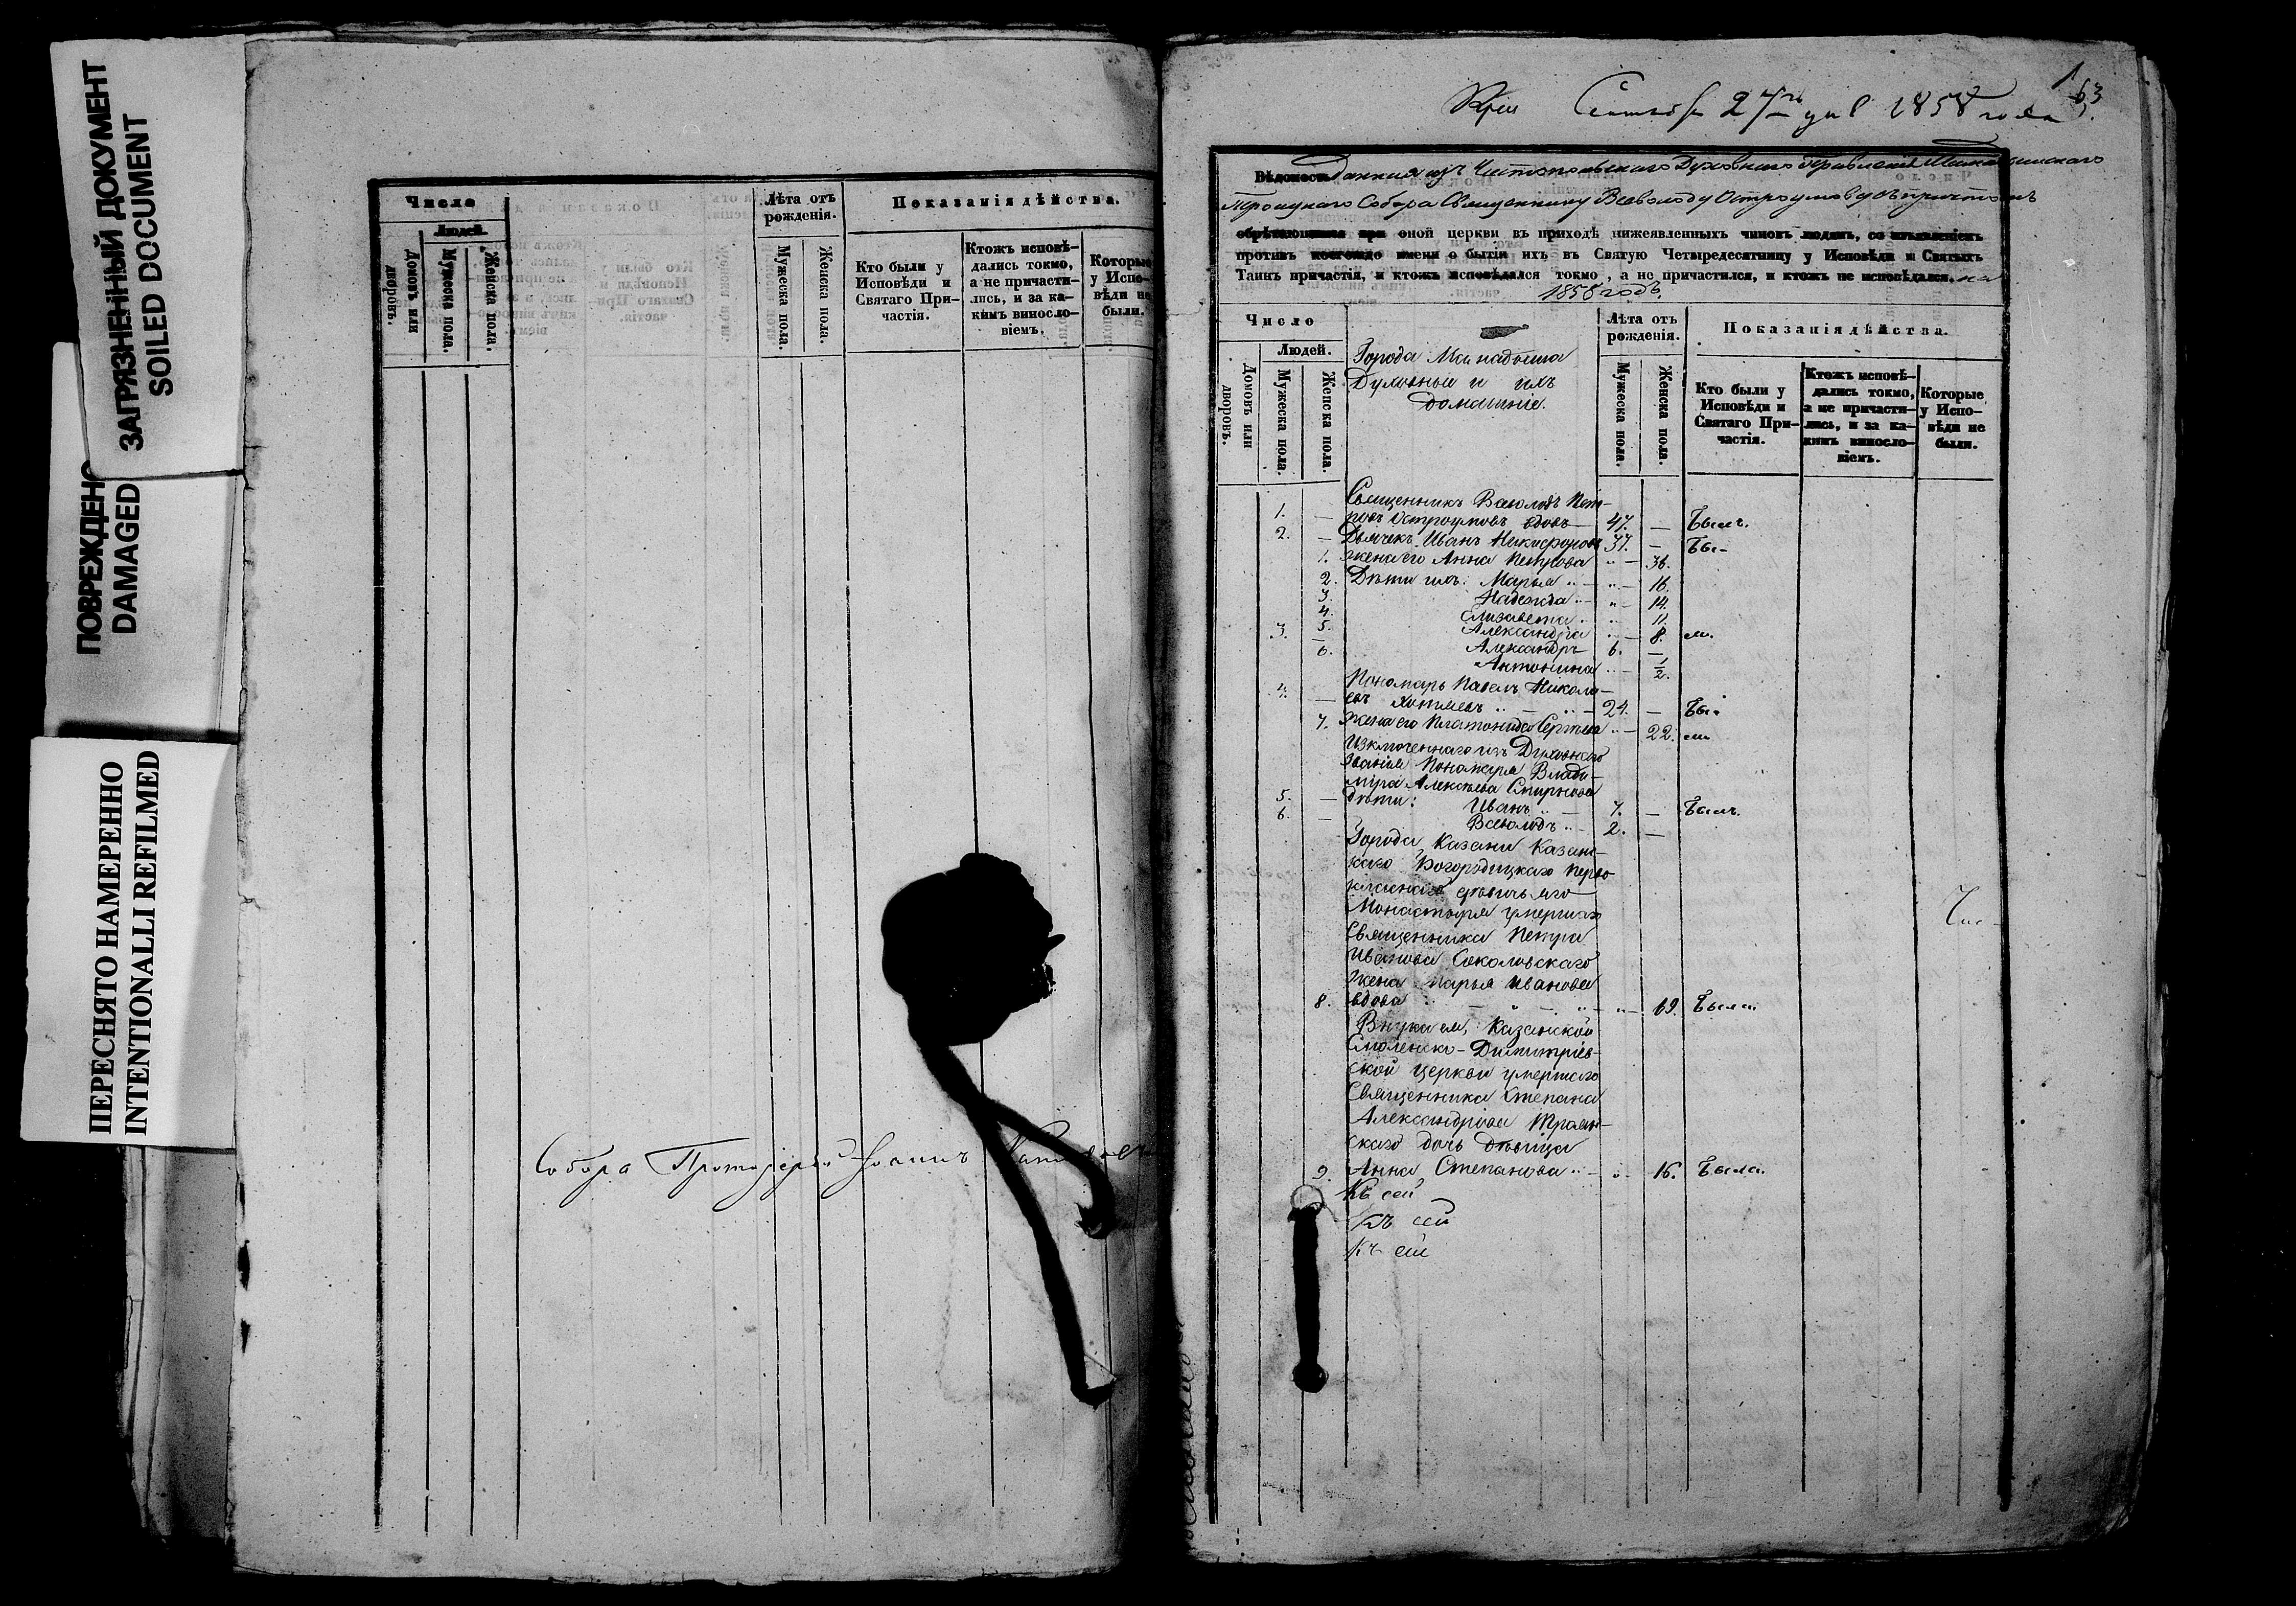 ЗАГРЯЗНЕННЫЙ ДОКУМЕНТ
SOILED DOCUMENT
ПОВРЕЖДЕНО
DAMAGED
ПЕРЕСНЯТО НАМЕРЕННО
INTENTIONALLI REFILMED
Число
Людей.
Домовъ или дворовъ.
Мужеска пола.
Женска пола.
Лѣта отъ рожденія.
Мужеска пола.
Женска пола.
Показанія дѣйства.
Кто были у
Исповѣди и
Святаго При-
частія.
Ктожъ исповѣ-
дались токмо,
а не причасти-
лись, и за ка-
кимъ виносло-
віемъ.
Которые
у Испо-
вѣди не
были.
Собора Протоіерей Іоаннъ
Сентября 27 дня 1858 года
163
Вѣдомость данная изъ Чистопольскаго Духовнаго Правленія Мамадышскаго
Троицкаго Собора Священнику Всеволоду Остроумову съ причтомъ
обрѣтающимся при оной церкви въ приходѣ нижеявленныхъ чиновъ людямъ, со изъявленіемъ
противъ коегождо имени о бытіи ихъ въ Святую Четыредесятницу у Исповѣди и Святыхъ
Таинъ причастія, и ктожъ исповѣдался токмо, а не причастился, и ктожъ не исповѣдался. на
1858 годъ.
Число
Людей.
Домовъ или дворовъ.
Мужеска пола.
Женска пола.
Города Мамадыша
Духовные и ихъ
домашніе.
Лѣта отъ
рожденія.
Мужеска пола.
Женска пола.
Показанія дѣйства.
Кто были у
Исповѣди и
Святаго При-
частія.
Ктожъ исповѣ-
дались токмо,
а не причасти-
лись, и за ка-
кимъ виносло-
віемъ.
Которые
у Испо-
вѣди не
были.
Священникъ Всеволодъ Пет-
1. — ровъ Остроумовъ вдовъ — 47. — Былъ.
2. — Дьячекъ Иванъ Никифоровъ 37. — Бы-
1. Жена его Анна Петрова „ — 36.
2. Дѣти ихъ: Марья „ — „ — 16.
3. Надежда „ — „ — 14.
4. Елизавета „ 11.
5. Александра „ — 8. ли.
3. — Александръ 6. —
6. Антонина „ — 1/2.
Пономарь Павелъ Никола-
4. — евъ — 24. — Бы-
7. Жена его Платонида Сергѣева „ — 22. ли
Изключеннаго изъ Духовнаго
званія Пономаря Влади-
міра Алексѣева Смирнова
5. — дѣти: Иванъ „ — 7. — Былъ.
6. — Всеволодъ „ — 2. —
Города Казани Казан-
скаго Богородицкаго перво
класнаго дѣвичьяго
Монастыря умершаго
Священника Петра
Иванова Соколовскаго
жена Марья Иванова
8. вдова „ — „ — „ — „ — 69. Была
Внука ея, Казанской
Смоленско-Димитріев-
ской церкви умершаго
Священника Степана
Александрова Траян-
скаго дочь дѣвица
9. Анна Степанова „ — „ — 16. Была.
Къ сей
къ сей
Къ сей